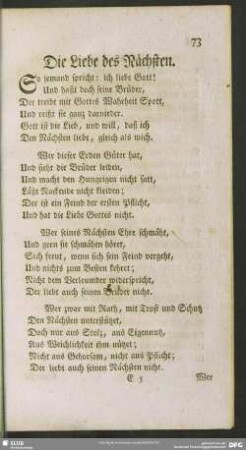 73
Die Liebe des Nächsten.
So jemand spricht: ich liebe Gott!
Und haßt doch seine Brüder,
Der treibt mit Gottes Wahrheit Spott,
Und reißt sie ganz darnieder.
Gott ist die Lieb, und will, daß ich
Den Nächsten liebe, gleich als mich.
Wer dieser Erden Güter hat,
Und sieht die Brüder leiden,
Und macht den Hungrigen nicht satt,
Läßt Nackende nicht kleiden;
Der ist ein Feind der ersten Pflicht,
Und hat die Liebe Gottes nicht.
Wer seines Nächsten Ehre schmäht,
Und gern sie schmähen höret,
Sich freut, wenn sich sein Feind vergeht,
Und nichts zum Besten kehret;
Nicht dem Verleumder widerspricht,
Der liebt auch seinen Bruder nicht.
Wer zwar mit Rath, mit Trost und Schutz
Den Nächsten unterstützet,
Doch nur aus Stolz, aus Eigennutz,
Aus Weichlichkeit ihm nützet;
Nicht aus Gehorsam, nicht aus Pflicht;
Der liebt auch seinen Nächsten nicht.
E 5 Wer
SLUB
DFG